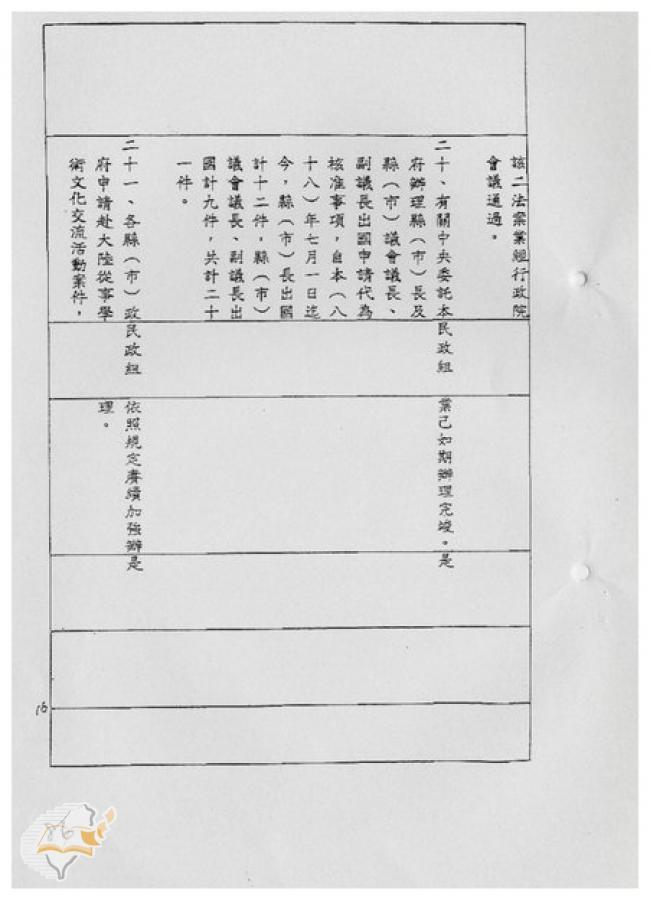 該二法案業經行政院
會議通過。
二十、有關中央委託本
府辦理縣(市)長及
縣(市)議會議長、
副議長出國申請代為
核准事項，自本(八
十八)年七月一日迄
今，縣(市)長出國
計十二件，縣(市)
議會議長、副議長出
國計九件，共計二十
一件。
民政組
業已如期辦理完竣。
是
二十一、各縣(市)政
府申請赴大陸從事學
術文化交流活動案件，
民政組
依照規定賡續加強辦
理。
是
16